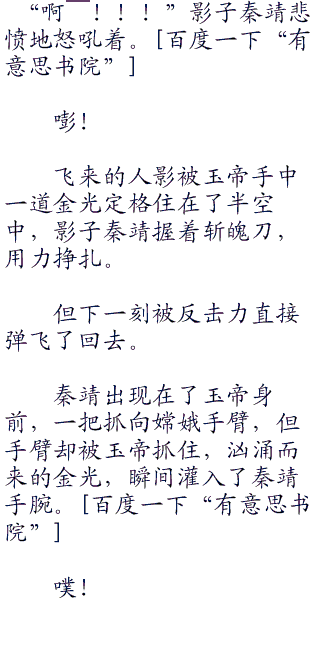 “啊　！！！”影子秦靖悲
愤地怒吼着。[百度一下“有
意思书院”]
嘭！
飞来的人影被玉帝手中
一道金光定格住在了半空
中，影子秦靖握着斩魄刀，
用力挣扎。
但下一刻被反击力直接
弹飞了回去。
秦靖出现在了玉帝身
前，一把抓向嫦娥手臂，但
手臂却被玉帝抓住，汹涌而
来的金光，瞬间灌入了秦靖
手腕。[百度一下“有意思书
院”]
噗！